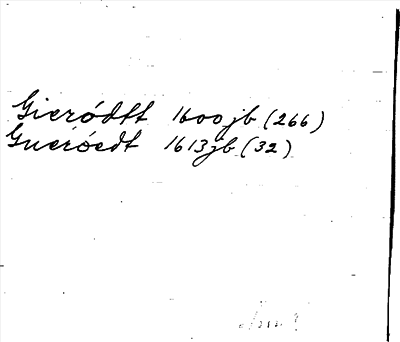 Gieródtt 1600 jb (266)
Gneróedt 1613 jb (32)